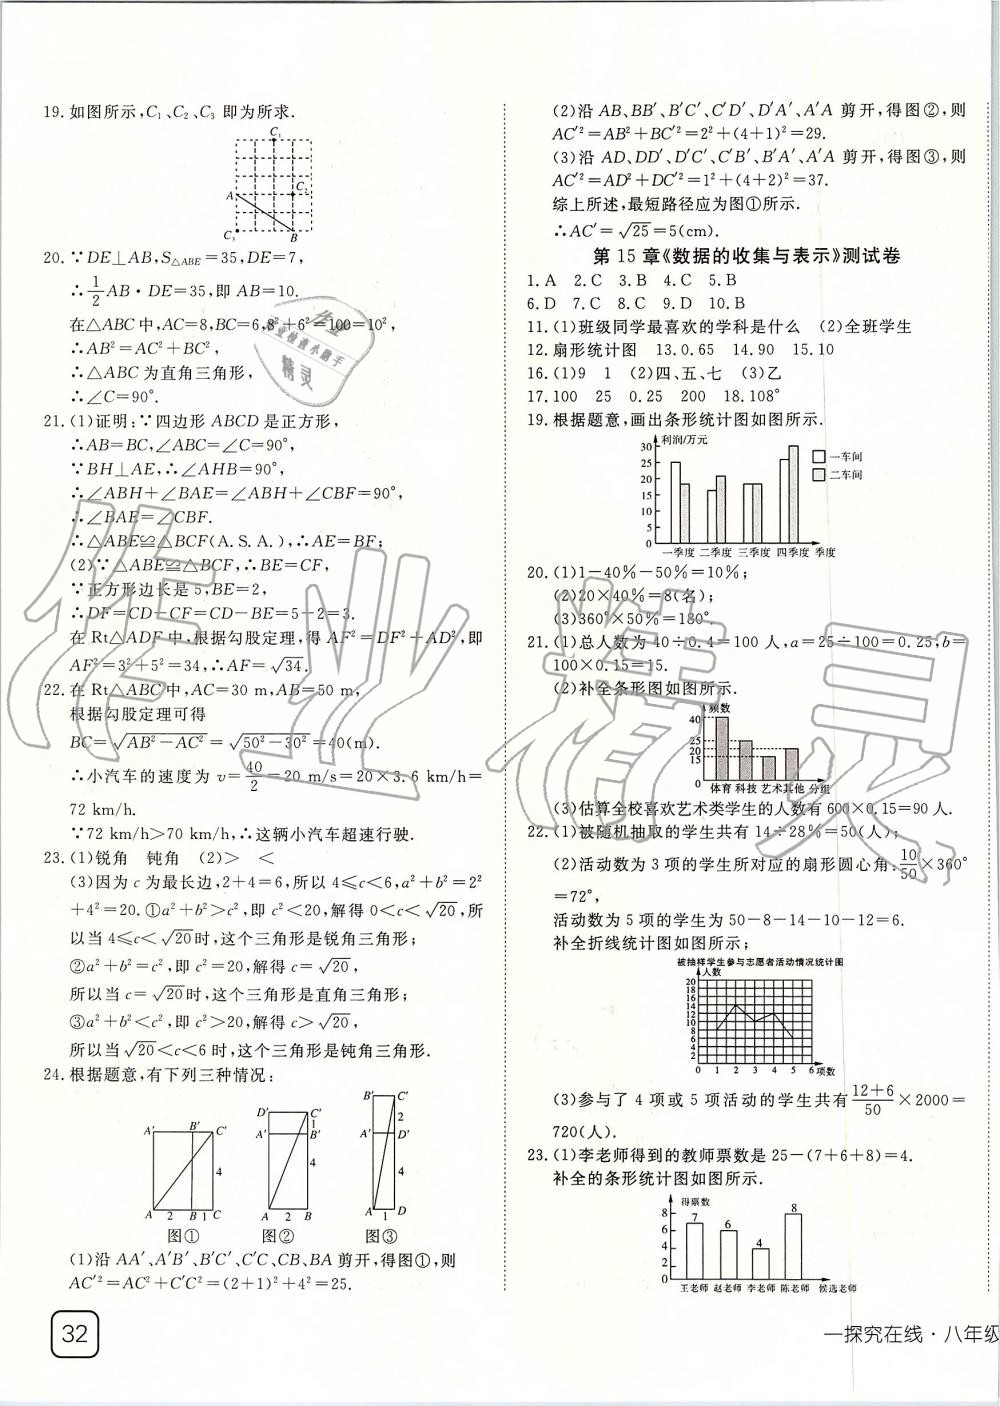 19. 如图所示,C₁、C₂、C₃ 即为所求.
C₁
A
C₂
C₃
B
20. ∵DE⊥AB,S△ABE=35,DE=7,
∴1/2 AB·DE=35,即 AB=10.
在△ABC 中,AC=8,BC=6,8²+6²=100=10²,
∴AB²=AC²+BC²,
∴△ABC 为直角三角形,
∴∠C=90°.
21. (1)证明:∵四边形 ABCD 是正方形,
∴AB=BC,∠ABC=∠C=90°,
∵BH⊥AE,∴∠AHB=90°,
∴∠ABH+∠BAE=∠ABH+∠CBF=90°,
∴∠BAE=∠CBF.
∴△ABE≌△BCF(A.S.A.),∴AE=BF;
(2)∵△ABE≌△BCF,∴BE=CF,
∵正方形边长是 5,BE=2,
∴DF=CD-CF=CD-BE=5-2=3.
在 Rt△ADF 中,根据勾股定理,得 AF²=DF²+AD²,即
AF²=3²+5²=34,∴AF=√34.
22. 在 Rt△ABC 中,AC=30 m,AB=50 m,
根据勾股定理可得
BC=√(AB²-AC²)=√(50²-30²)=40(m).
∴小汽车的速度为 v=40/2=20 m/s=20×3.6 km/h=
72 km/h.
∵72 km/h>70 km/h,∴这辆小汽车超速行驶.
23. (1)锐角 钝角 (2)> <
(3)因为 c 为最长边,2+4=6,所以 4≤c<6,a²+b²=2²
+4²=20.①a²+b²>c²,即 c²<20,解得 0<c<√20,所
以当 4≤c<√20时,这个三角形是锐角三角形;
②a²+b²=c²,即 c²=20,解得 c=√20,
所以当 c=√20时,这个三角形是直角三角形;
③a²+b²<c²,即 c²>20,解得 c>√20,
所以当√20<c<6 时,这个三角形是钝角三角形.
24. 根据题意,有下列三种情况:
A′ B′ C′ 4 A 2 B 1 C
D′ C′ 1 A′ B′ 4 A 2 B
B′ C′ 2 A′ D′ 4 A 1 D
图① 图② 图③
(1)沿 AA′、A′B′、B′C′、C′C、CB、BA 剪开,得图①,则
AC′²=AC²+C′C²=(2+1)²+4²=25.
32
(2)沿 AB、BB′、B′C′、C′D′、D′A′、A′A 剪开,得图②,则
AC′²=AB²+BC′²=2²+(4+1)²=29.
(3)沿 AD、DD′、D′C′、C′B′、B′A′、A′A 剪开,得图③,则
AC′²=AD²+DC′²=1²+(4+2)²=37.
综上所述,最短路径应为图①所示.
∴AC′=√25=5(cm).
第 15 章《数据的收集与表示》测试卷
1. A 2. C 3. B 4. C 5. B
6. D 7. C 8. C 9. D 10. B
11. (1)班级同学最喜欢的学科是什么 (2)全班学生
12. 扇形统计图 13. 0.65 14. 90 15. 10
16. (1)9 1 (2)四、五、七 (3)乙
17. 100 25 0.25 200 18. 108°
19. 根据题意,画出条形统计图如图所示.
利润/万元
30
25
20
15
10
5
0
一车间
二车间
一季度 二季度 三季度 四季度 季度
20. (1)1-40%-50%=10%;
(2)20×40%=8(名);
(3)360°×50%=180°.
21. (1)总人数为 40÷0.4=100 人,a=25÷100=0.25;b=
100×0.15=15.
(2)补全条形图如图所示.
频数
40
25
20
15
0
体育 科技 艺术 其他 分组
(3)估算全校喜欢艺术类学生的人数有 600×0.15=90 人.
22. (1)被随机抽取的学生共有 14÷28%=50(人);
(2)活动数为 3 项的学生所对应的扇形圆心角:10/50×360°
=72°,
活动数为 5 项的学生为 50-8-14-10-12=6.
补全折线统计图如图所示;
被抽样学生参与志愿者活动情况统计图
人数
20
18
16
14
12
10
8
6
4
2
0 1 2 3 4 5 6 项数
(3)参与了 4 项或 5 项活动的学生共有 12+6/50×2000=
720(人).
23. (1)李老师得到的教师票数是 25-(7+6+8)=4.
补全的条形统计图如图所示.
得票数
8
6
4
2
0
7 6 4 8
王老师 赵老师 李老师 陈老师 候选老师
一探究在线·八年级
作业精灵
作业
作业检查小助手
精灵